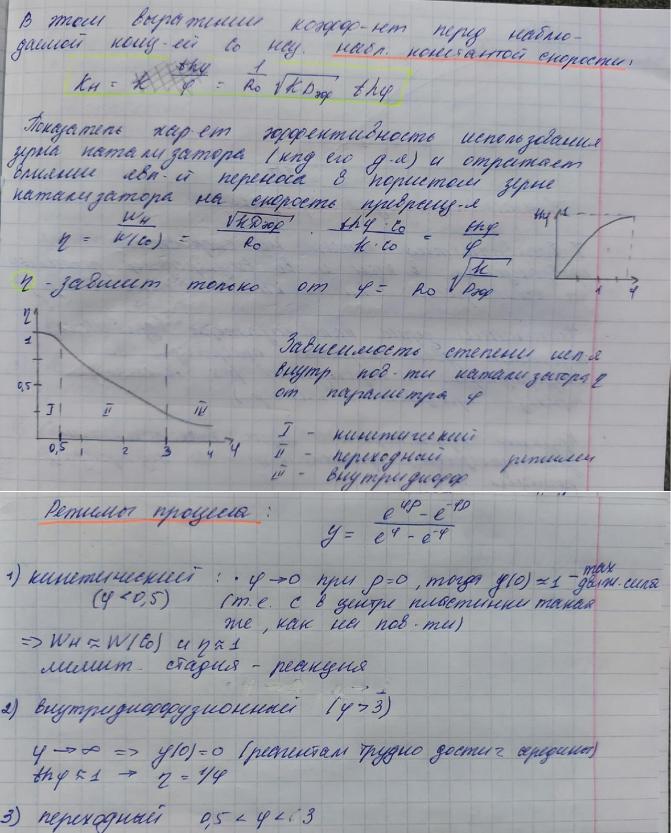 В этом выражении коэфф-иент перед наблю-
даемой конц-ей C₀ наз. набл. константой скорости:
Kн = thφ/φ = 1/R₀ √(KDэф) thφ
Показатель хар-ет эффективность использования
зерна катализатора (кпд его д-я) и отражает
влияние явл-й переноса в пористом зерне
катализатора на скорость превращ-я
η = Wн/W(C₀) = √(KDэф)/R₀ · thφ·C₀/K·C₀ = thφ/φ
thφ 1
1 φ
η - зависит только от φ = R₀ √(K/Dэф)
η
1
0,5
I II III
0,5 1 2 3 4 φ
Зависимость степени исп-я
внутр. пов-ти катализатора η
от параметра φ
I - кинетический
II - переходный режимы
III - внутридифф
Режимы процесса: y = (e^φρ - e^-φρ)/(e^φ - e^-φ)
1) кинетический: · φ→0 при ρ=0, тогда y(0)≈1 - max движ. сила
(φ<0,5) (т.е. C в центре пластинки такая
же, как на пов-ти)
=> Wн ≈ W(C₀) и η≈1
лимит. стадия - реакция
2) внутридиффузионный (φ>3)
φ→∞ => y(0)=0 (реагентам трудно достиг середины)
thφ≈1 → η = 1/φ
3) переходный 0,5<φ<3